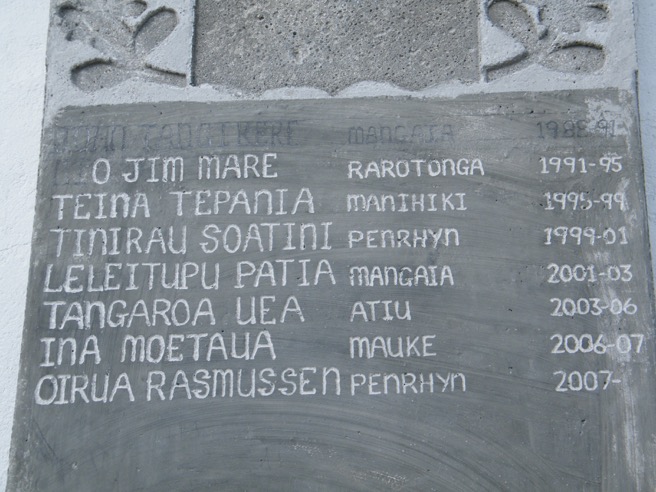 MANGAIA 1988-91
O JIM MARE RAROTONGA 1991-95
TEINA TEPANIA MANIHIKI 1995-99
TINIRAU SOATINI PENRHYN 1999-01
LELEITUPU PATIA MANGAIA 2001-03
TANGAROA UEA ATIU 2003-06
INA MOETAUA MAUKE 2006-07
OIRUA RASMUSSEN PENRHYN 2007-